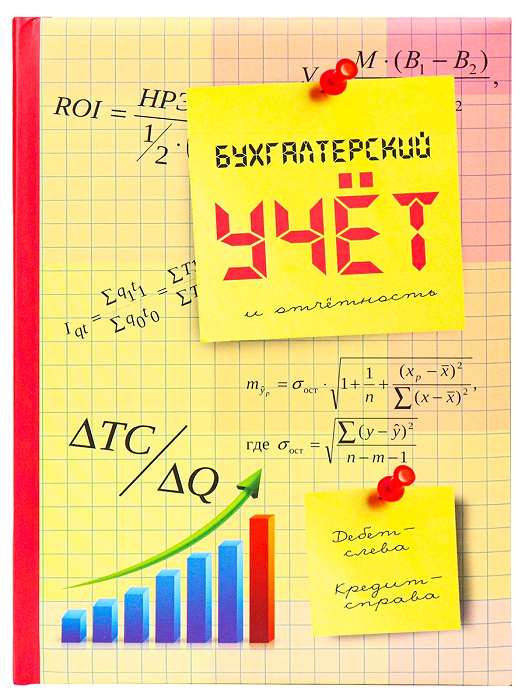 V M · (B₁ − B₂) ,
ROI = НРЭ
1/2 · (
БУХГАЛТЕРСКИЙ
УЧЁТ
и отчётность
I qt = Σq₁t₁ / Σq₀t₀ = ΣT / ΣT
m ŷₚ = σ ост · √ 1 + 1/n + (xₚ − x̄)² / Σ(x − x̄)² ,
где σ ост = √ Σ(y − ŷ)² / n − m − 1
ΔTC/ΔQ
Дебет-
слева
Кредит-
справа